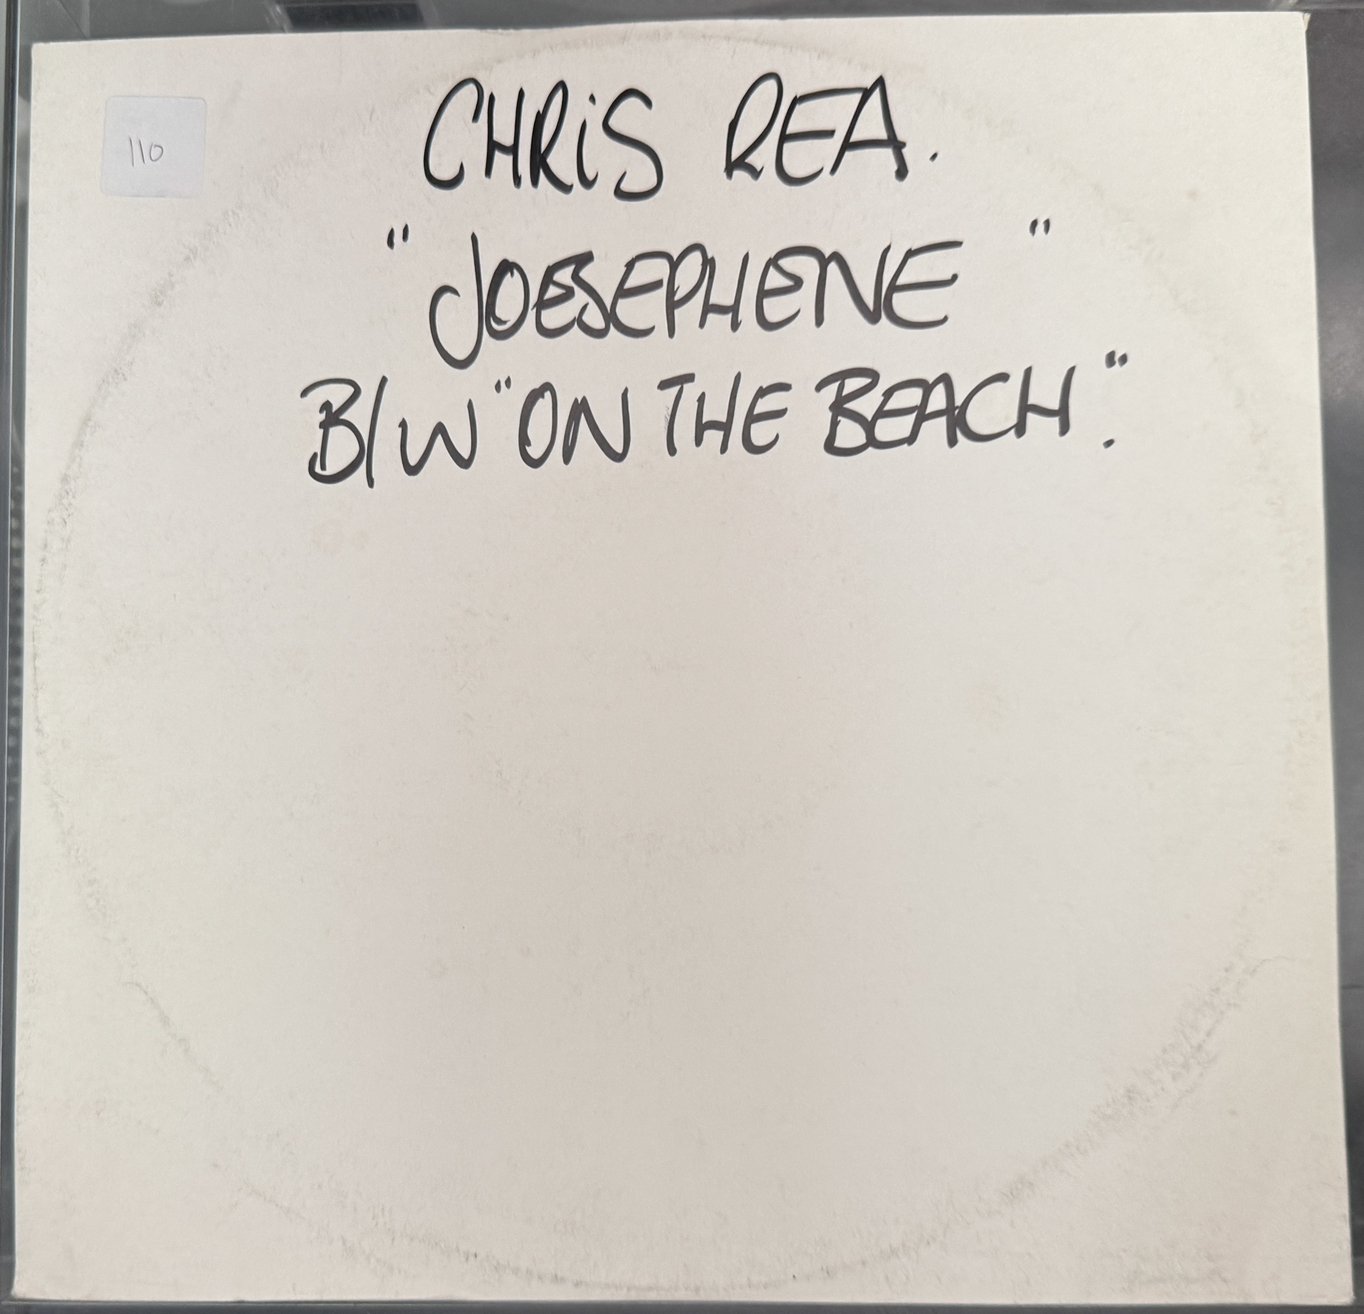 110
CHRiS REA.
"JOESEPHENE"
B/W "ON THE BEACH".